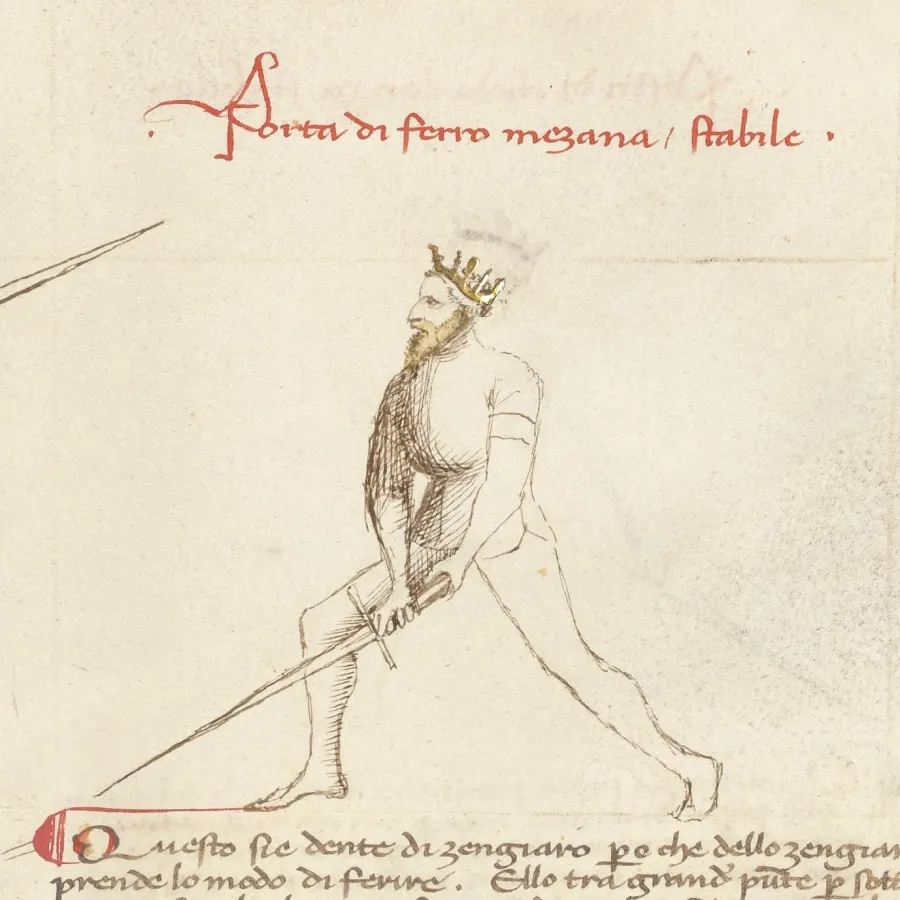 Porta di ferro mezana / stabile .
Questo sie dente di zengiaro p̱o che dello zengiar
prende lo modo di ferire. Ello tra grand' pūte p̱ sott